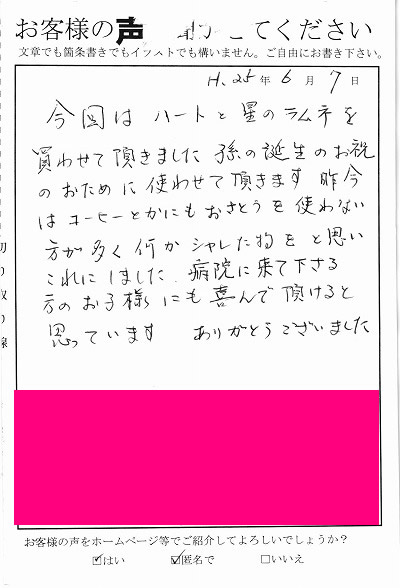 お客様の声 てください
文章でも箇条書きでもイラストでも構いません。ご自由にお書き下さい。
H.25年6月7日
今回は ハートと星のラムネを
買わせて頂きました 孫の誕生のお祝
のおために使わせて頂きます 昨今
はコーヒーとかにもおさとうを使わない
方が多く何かシャレた物をと思い
これにしました、病院に来て下さる
方のお子様にも喜んで頂けると
思っています ありがとうございました
切り取り線
お客様の声をホームページ等でご紹介してよろしいでしょうか？
☑はい ☑匿名で □いいえ